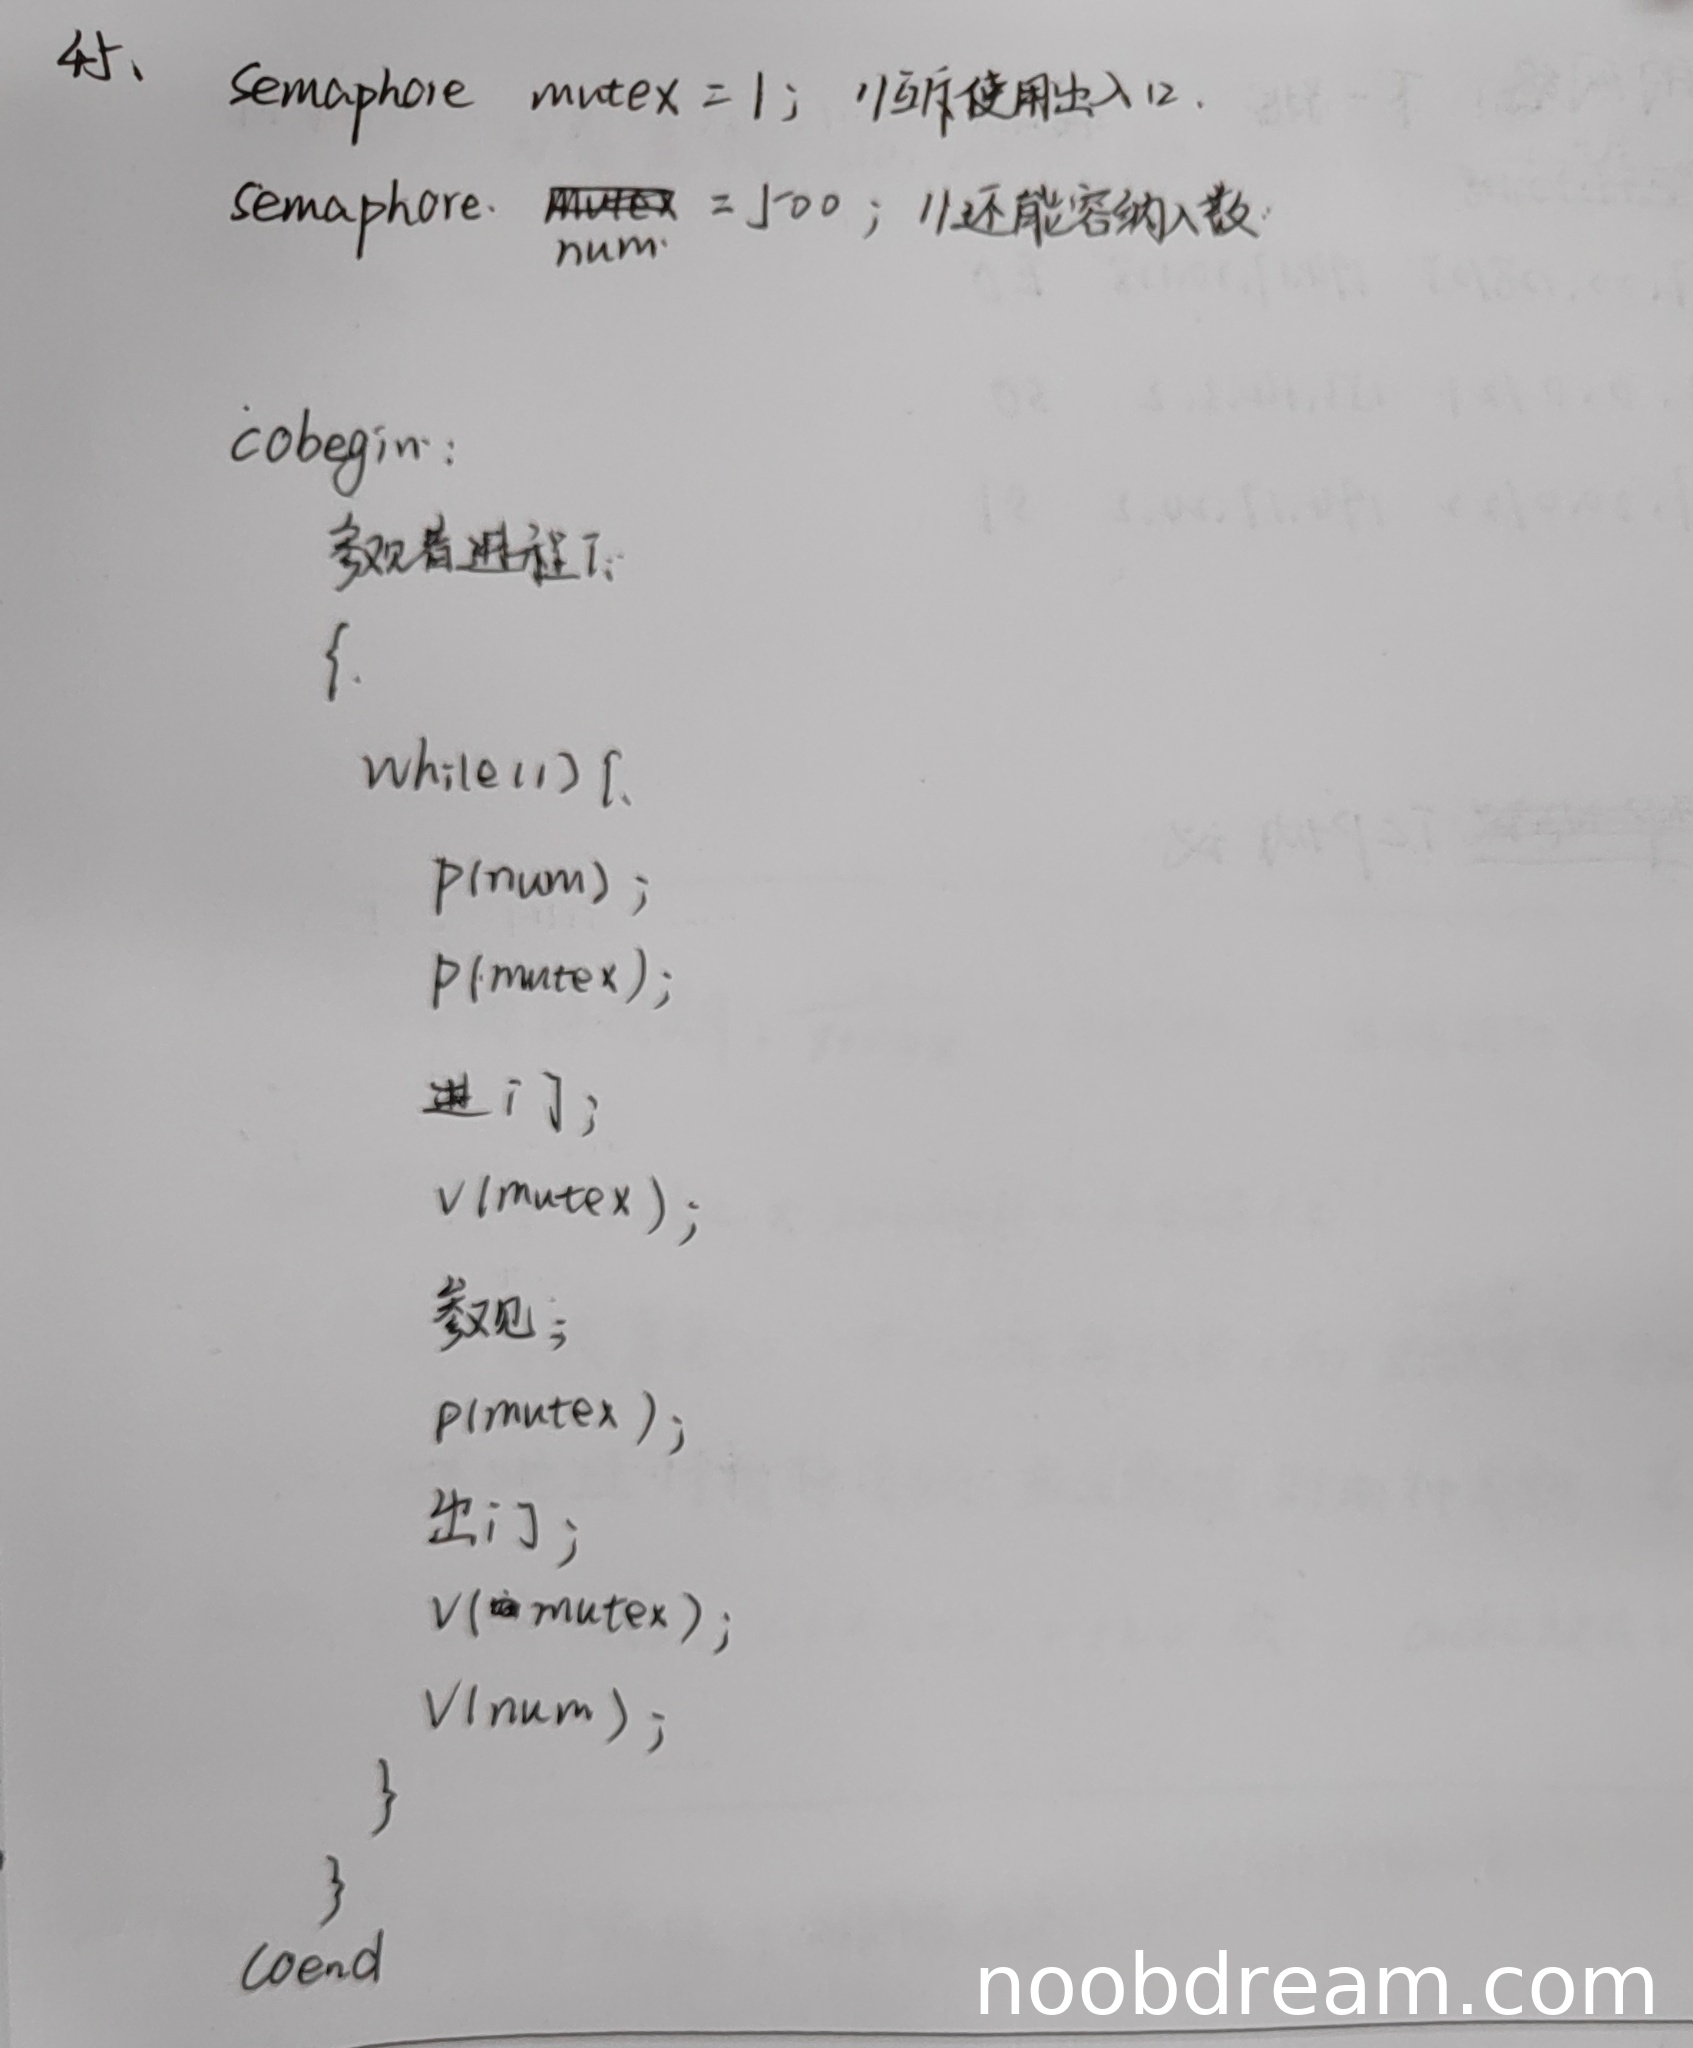 45、 semaphore mutex = 1; //互斥使用出入口.
semaphore. num = 500; //还能容纳人数.
cobegin:
参观者进程i:
{
while(1){
p(num);
p(mutex);
进门;
v(mutex);
参观;
p(mutex);
出门;
v(mutex);
v(num);
}
}
coend
noobdream.com